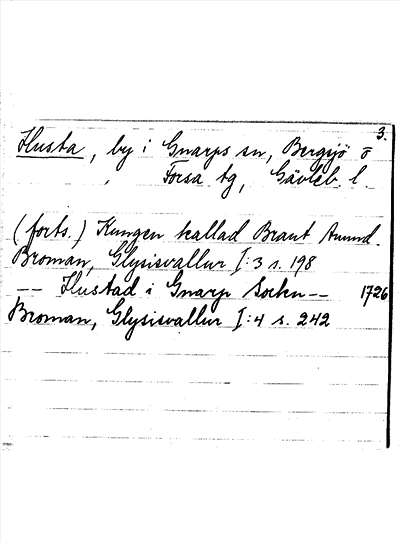 3.
Ilusta, by i Gnarps sn, Bergsjö o
Forsa tg, Gävleb. l.
(forts.) Kungen kallad Braut Anund.
Broman, Glysisvallur I:3 s. 198
-- Ilustad i Gnarp Sockn -- 1726
Broman, Glysisvallur I:4 s. 242